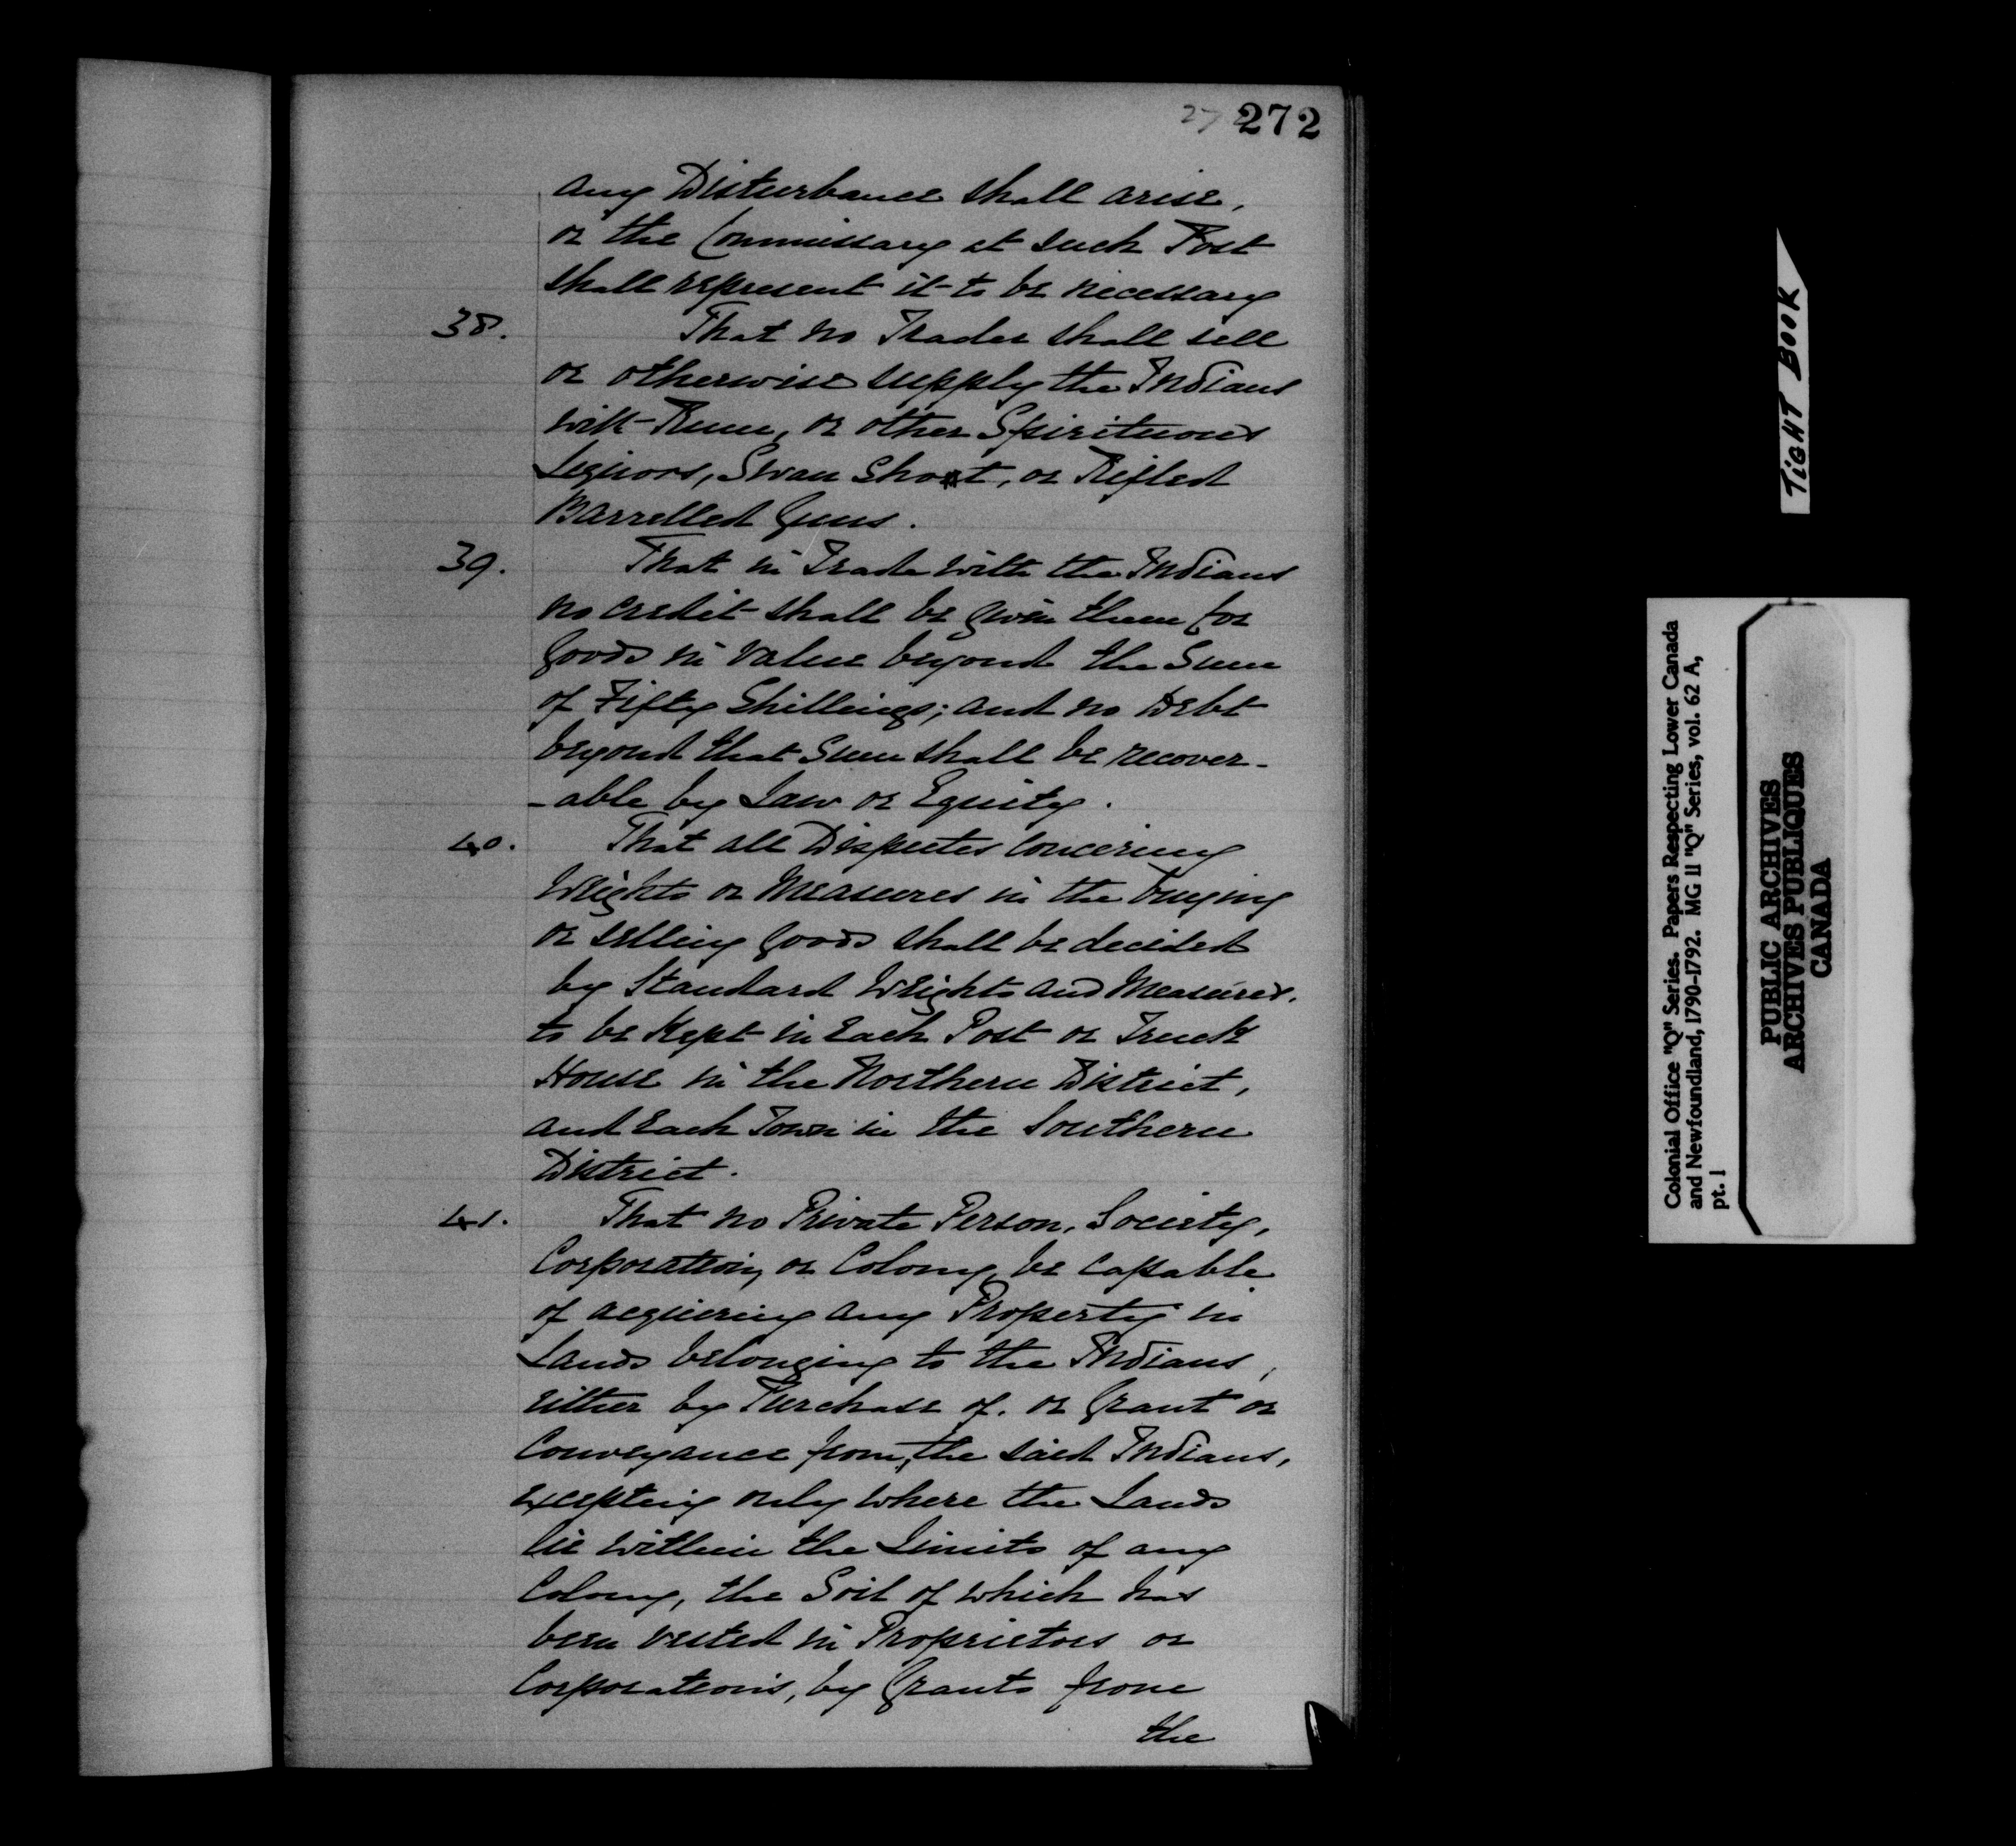 27 272
any Disturbance shall arise,
or the Commissary at such Post
shall represent it to be necessary
38. That no Trader shall sell
or otherwise supply the Indians
with Rum, or other Spirituous
Liquors, Swan Shot, or Rifled
Barrelled Guns.
39. That in Trade with the Indians
no credit shall be given them for
Goods in value beyond the Sum
of Fifty Shillings; and no Debt
beyond that Sum shall be recover-
-able by Law or Equity.
40. That all Disputes concerning
Weights or Measures in the buying
or selling Goods shall be decided
by Standard Weights and Measures,
to be Kept in Each Post or Truck
House in the Northern District,
and Each Town in the Southern
District.
41. That no Private Person, Society,
Corporation, or Colony, be capable
of acquiring any Property in
Lands belonging to the Indians,
either by Purchase of, or Grant or
Conveyance from, the said Indians,
excepting only where the Lands
lie within the Limits of any
Colony, the Soil of which has
been vested in Proprietors or
Corporations, by Grants from
the
TIGHT BOOK
Colonial Office "Q" Series. Papers Respecting Lower Canada
and Newfoundland, 1790-1792. MG 11 "Q" Series, vol. 62 A,
pt. 1
PUBLIC ARCHIVES
ARCHIVES PUBLIQUES
CANADA